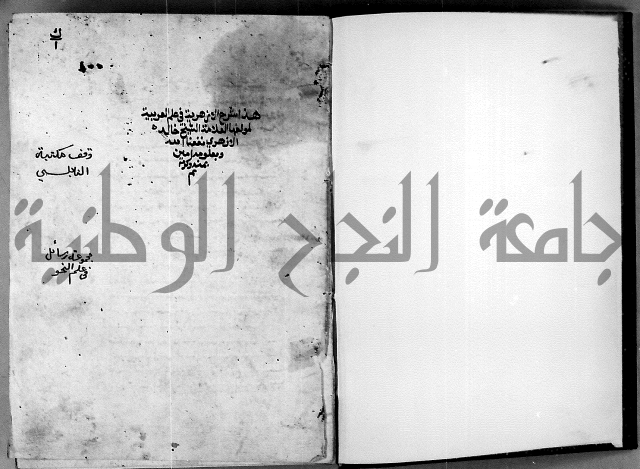 ك
١
١٠٠
هذا شرح الازهرية في علم العربية
لمولفها العلامة الشيخ خالد
الازهري نفعنا الله
وبعلومه امين
بمنه وكرمه
م
وقف مكتبة
النابلسي
مجموعة رسائل
في علم النحو
جامعة النجاح الوطنية